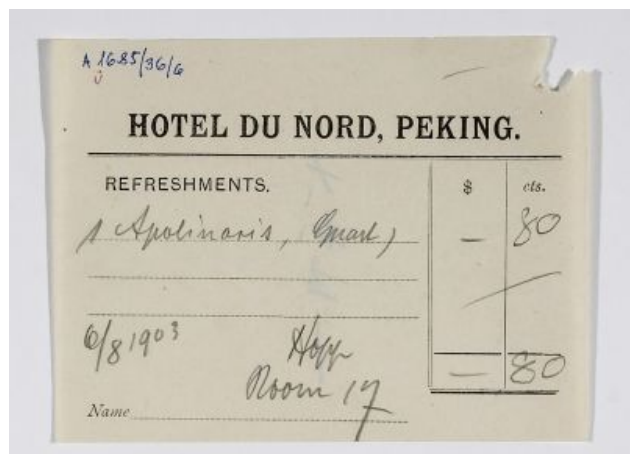 A 1685/36/6
HOTEL DU NORD, PEKING.
REFRESHMENTS. $ cts.
1 Apolinaris, Quart, — 80
6/8 1903 Hopp
— 80
Room 17
Name